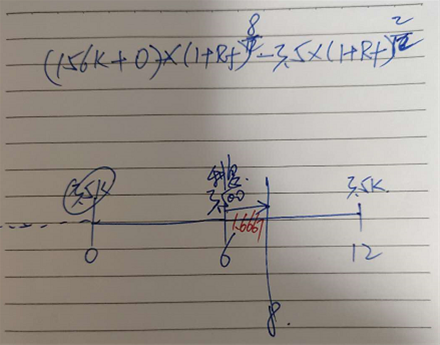 (156K+0)×(1+Rf)^8/12-3,5×(1+Rf)^2/12
3,5K 3,500 3,5K
1.6667
0 6 12
8.